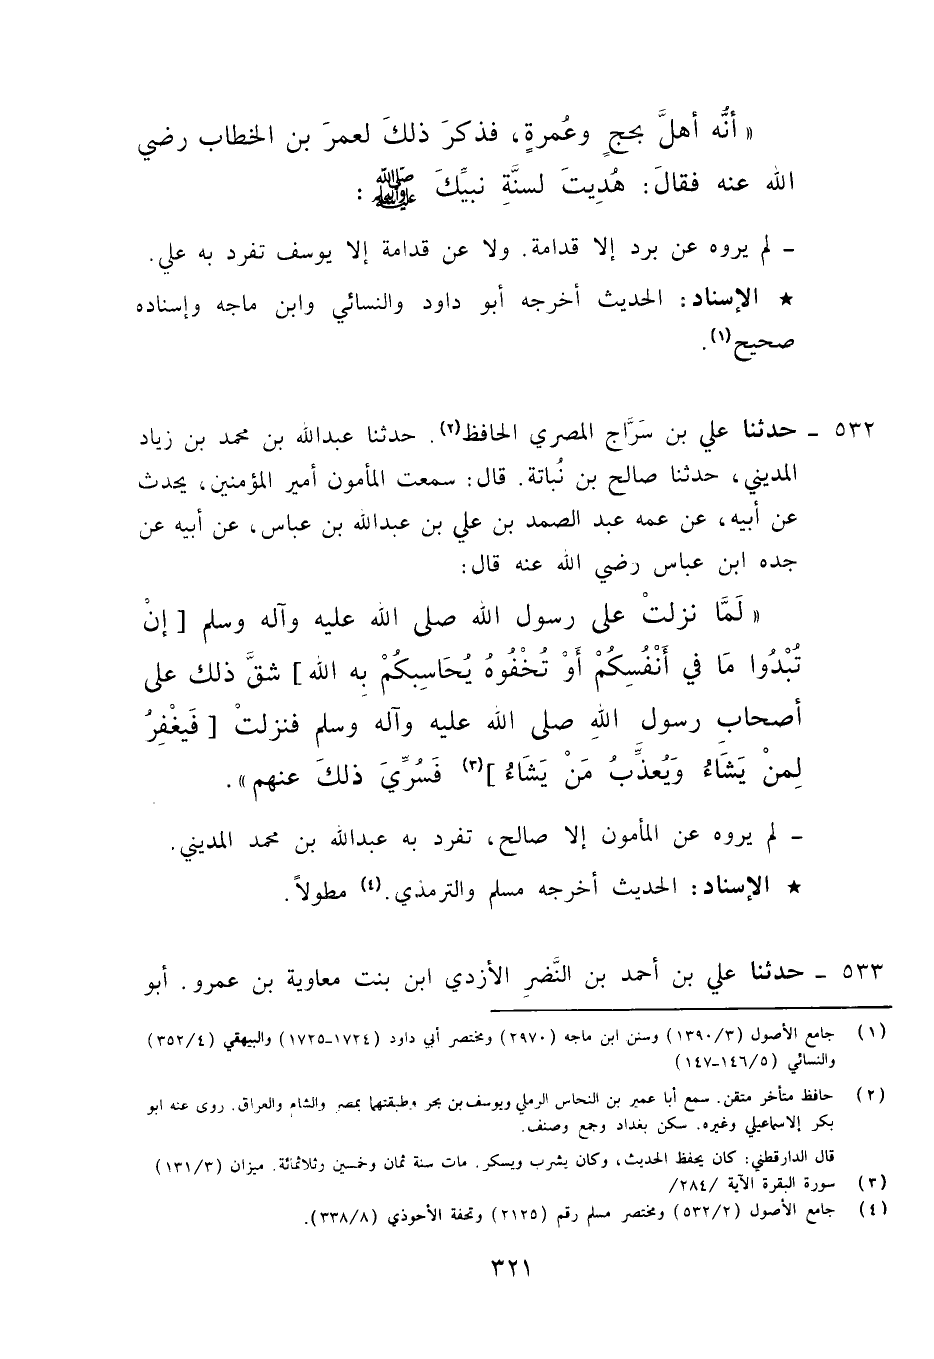 « أنَّه أهلَّ بحجٍ وعُمرةٍ، فذكرَ ذلكَ لعمرَ بن الخطاب رضي
الله عنه فقالَ: هُدِيتَ لسنَّةِ نبيِّكَ ﷺ :
ـ لم يروه عن برد إلا قدامة. ولا عن قدامة إلا يوسف تفرد به علي.
★ الإسناد: الحديث أخرجه أبو داود والنسائي وابن ماجه وإسناده
صحيح(١).
٥٣٢ ـ حدثنا علي بن سَرَّاج المصري الحافظ(٢). حدثنا عبدالله بن محمد بن زياد
المديني، حدثنا صالح بن نُباتة. قال: سمعت المأمون أمير المؤمنين، يحدث
عن أبيه، عن عمه عبد الصمد بن علي بن عبدالله بن عباس، عن أبيه عن
جده ابن عباس رضي الله عنه قال:
« لَمَّا نزلتْ على رسول الله صلى الله عليه وآله وسلم [ إنْ
تُبْدُوا مَا في أَنْفُسِكُمْ أَوْ تُخْفُوهُ يُحَاسِبكُمْ بِه الله ] شقَّ ذلك على
أصحابِ رسول اللهِ صلى الله عليه وآله وسلم فنزلتْ [ فَيغْفِرُ
لِمنْ يَشَاءُ وَيُعذِّبُ مَنْ يَشَاءُ ](٣) فَسُرِّيَ ذلكَ عنهم».
ـ لم يروه عن المأمون إلا صالح، تفرد به عبدالله بن محمد المديني.
★ الإسناد: الحديث أخرجه مسلم والترمذي.(٤) مطولاً.
٥٣٣ ـ حدثنا علي بن أحمد بن النَّضرِ الأزدي ابن بنت معاوية بن عمرو. أبو
(١) جامع الأصول (١٣٩٠/٣) وسنن ابن ماجه (٢٩٧٠) ومختصر أبي داود (١٧٢٤-١٧٢٥) والبيهقي (٣٥٢/٤)
والنسائي (١٤٦/٥-١٤٧)
(٢) حافظ متأخر متقن. سمع أبا عمير بن النحاس الرملي ويوسف بن بحر وطبقتهما بمصر والشام والعراق. روى عنه ابو
بكر الإسماعيلي وغيره. سكن بغداد وجمع وصنف.
قال الدارقطني: كان يحفظ الحديث، وكان يشرب ويسكر. مات سنة ثمان وخمسين وثلاثمائة. ميزان (١٣١/٣)
(٣) سورة البقرة الآية /٢٨٤/
(٤) جامع الأصول (٥٣٢/٢) ومختصر مسلم رقم (٢١٢٥) وتحفة الأحوذي (٣٣٨/٨).
٣٢١